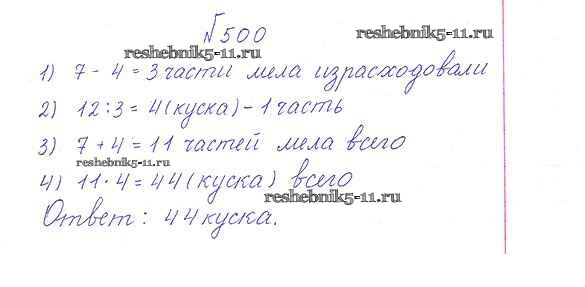 №500
reshebnik5-11.ru
reshebnik5-11.ru
1) 7 - 4 = 3 части мела израсходовали
2) 12 : 3 = 4 (куска) - 1 часть
3) 7 + 4 = 11 частей мела всего
reshebnik5-11.ru
4) 11 · 4 = 44 (куска) всего
reshebnik5-11.ru
Ответ: 44 куска.